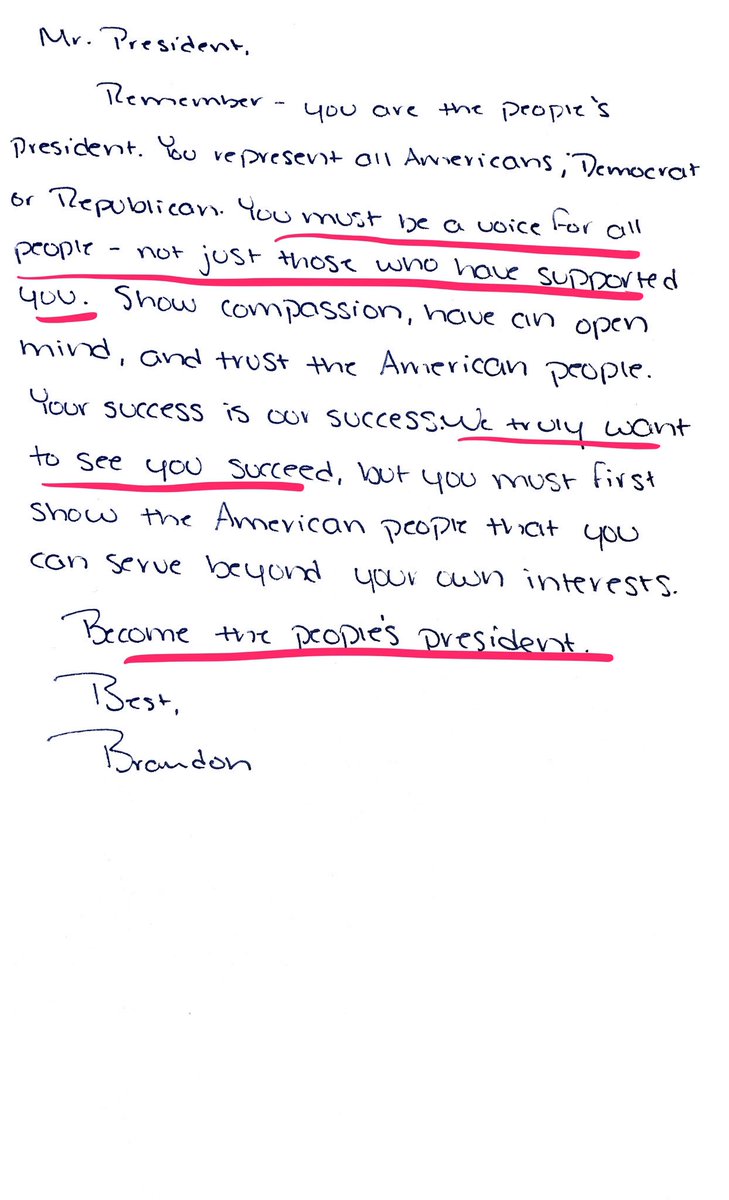 Mr. President,
Remember - you are the people's
President. You represent all Americans, Democrat
or Republican. You must be a voice for all
people - not just those who have supported
you. Show compassion, have an open
mind, and trust the American people.
Your success is our success. We truly want
to see you succeed, but you must first
show the American people that you
can serve beyond your own interests.
Become the people's president.
Best,
Brandon